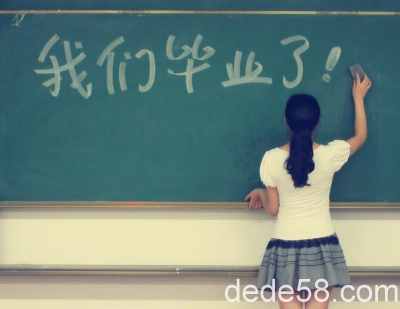 我们毕业了!
dede58.com